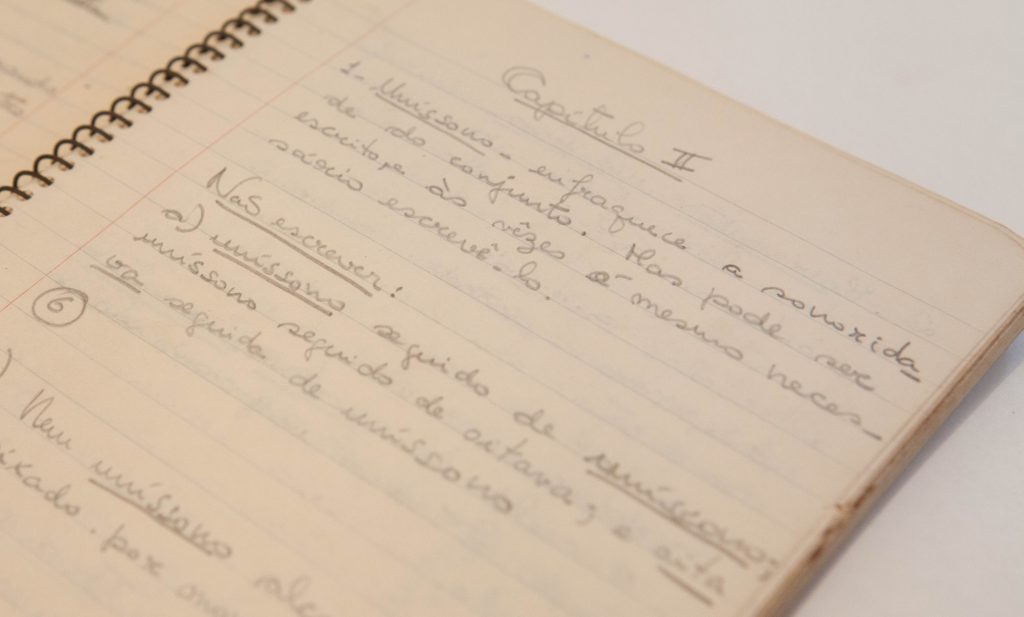 Capítulo II
1- Uníssono - enfraquece a sonorida
de do conjunto. Mas pode ser
escrito, e às vêzes é mesmo neces-
sário escrevê-lo.
Não escrever:
a) uníssono seguido de uníssono;
uníssono seguido de oitava; e oita
va seguida de uníssono
6
Nem uníssono
por